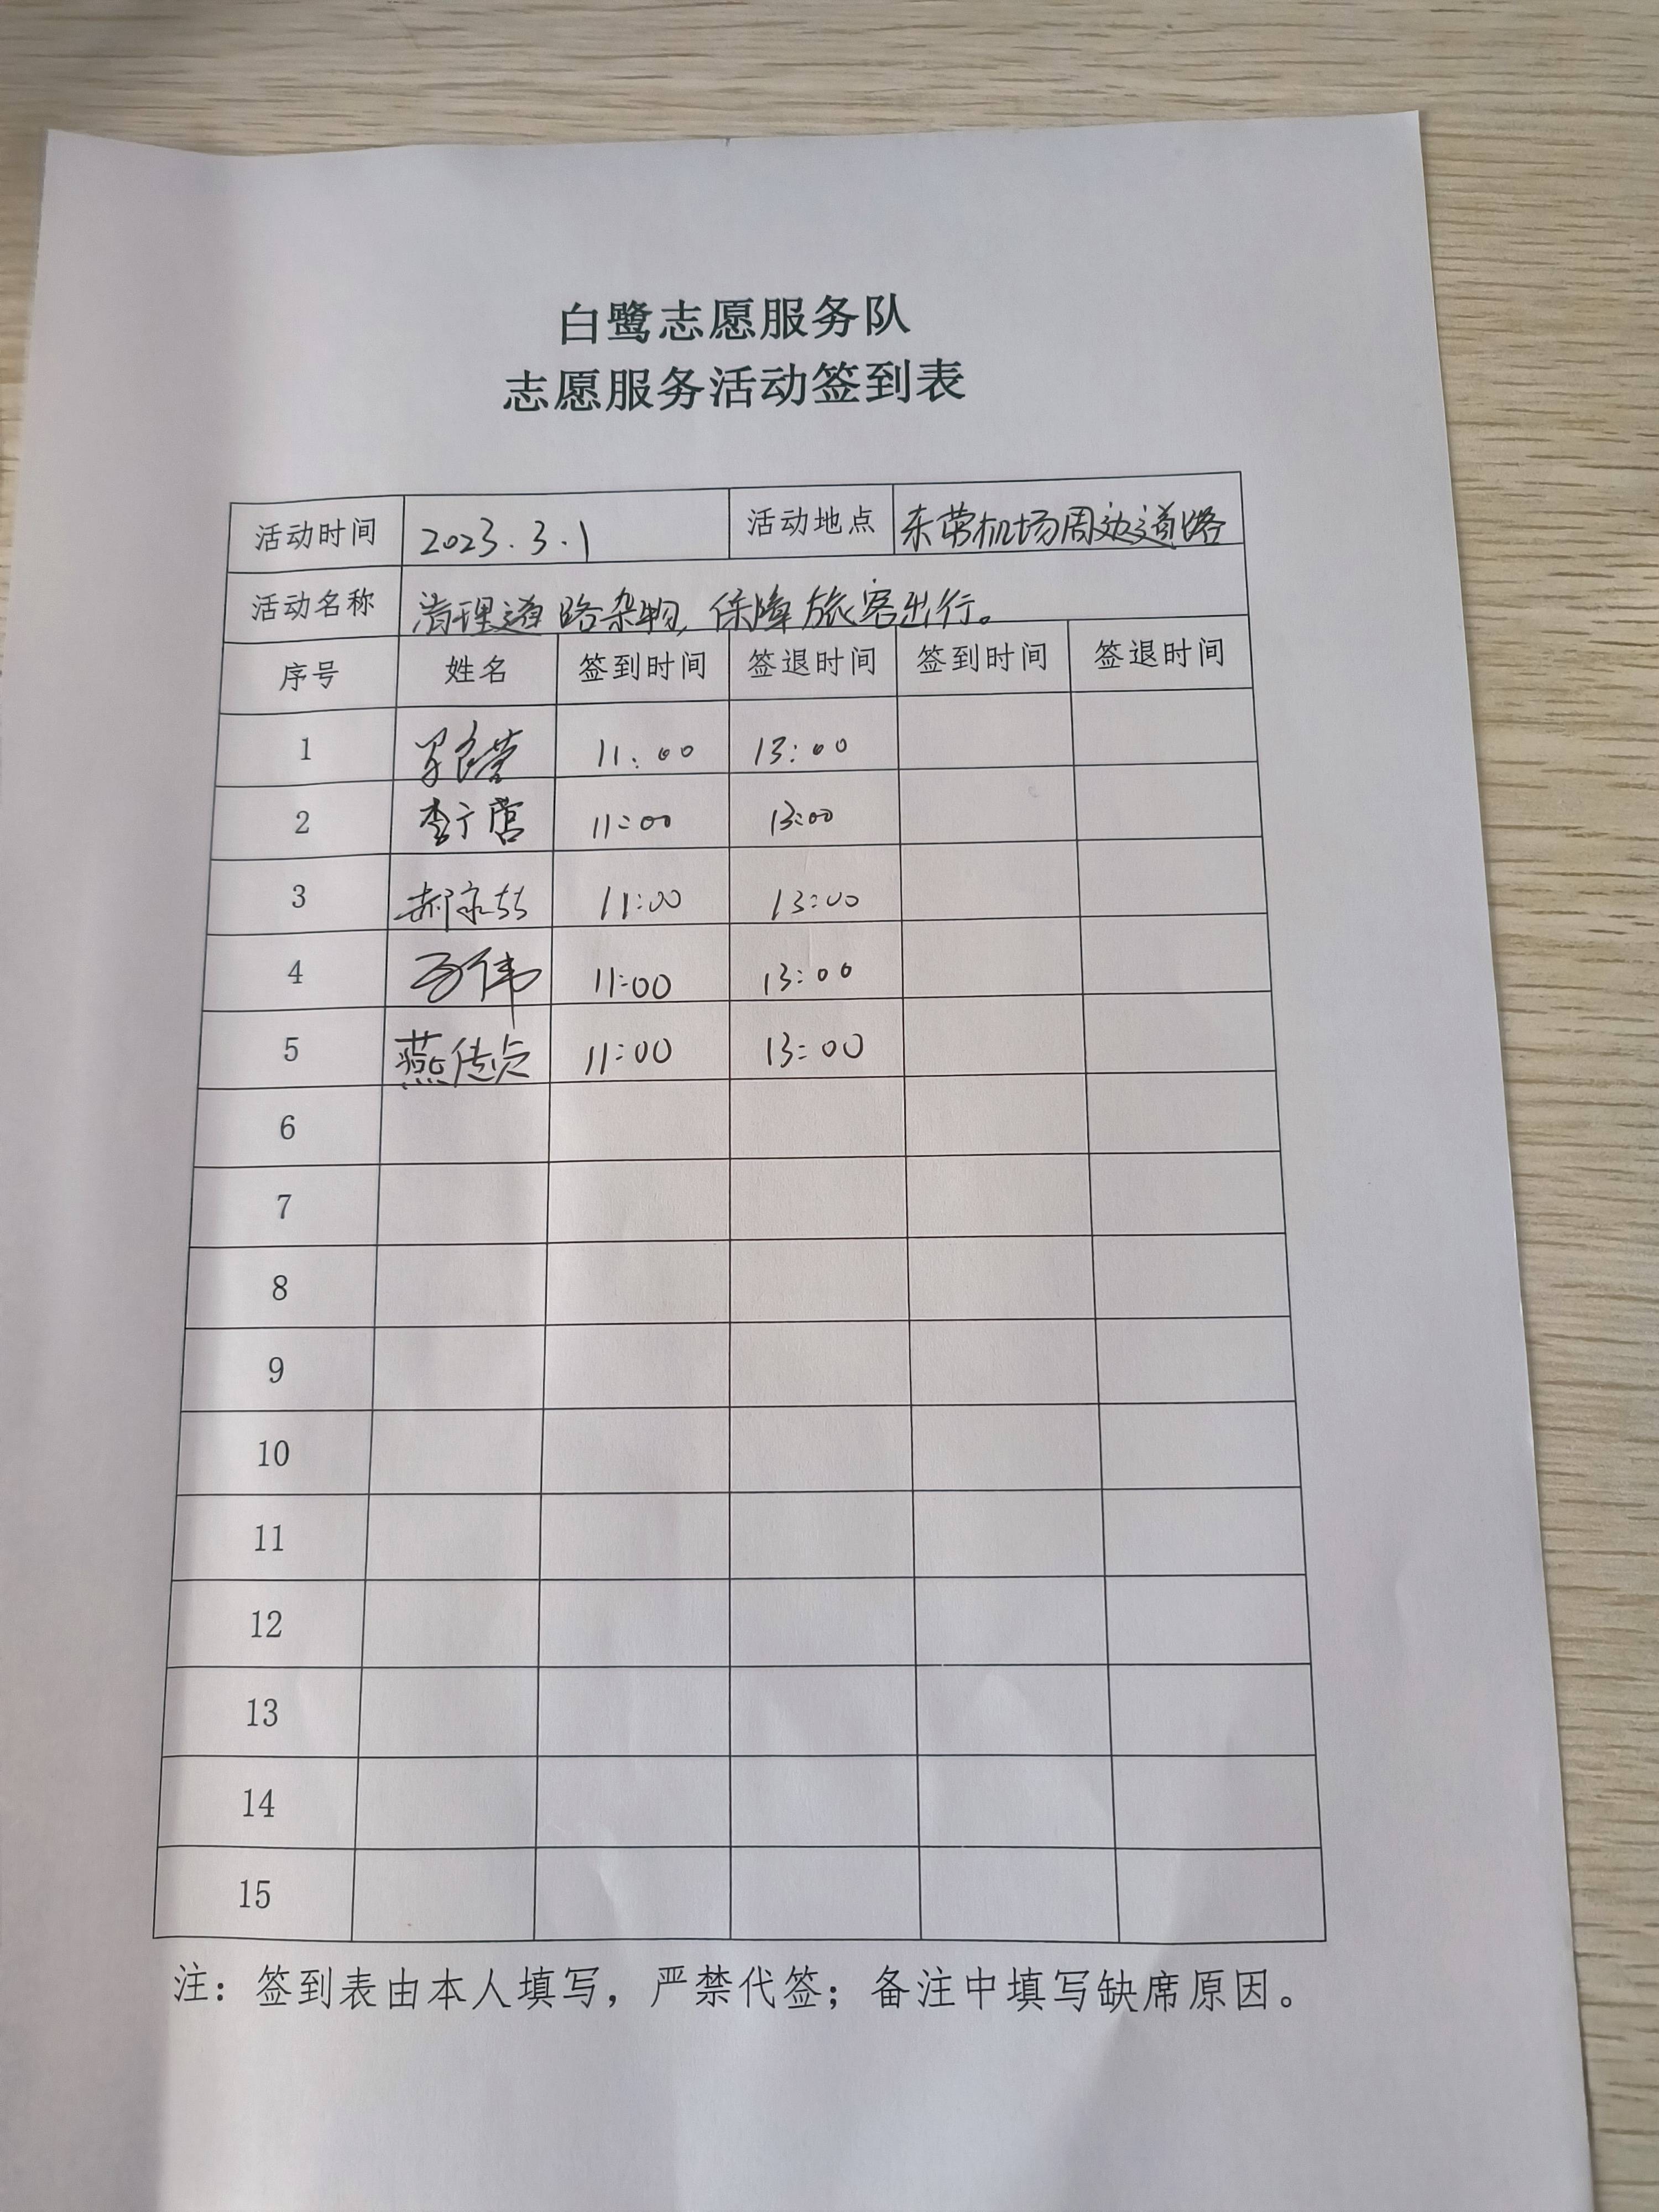 白鹭志愿服务队
志愿服务活动签到表
活动时间 2023.3.1 活动地点 东营机场周边道路
活动名称 清理道路杂物,保障旅客出行。
序号 姓名 签到时间 签退时间 签到时间 签退时间
1 11:00 13:00
2 李广营 11:00 13:00
3 11:00 13:00
4 11:00 13:00
5 11:00 13:00
6
7
8
9
10
11
12
13
14
15
注：签到表由本人填写，严禁代签；备注中填写缺席原因。